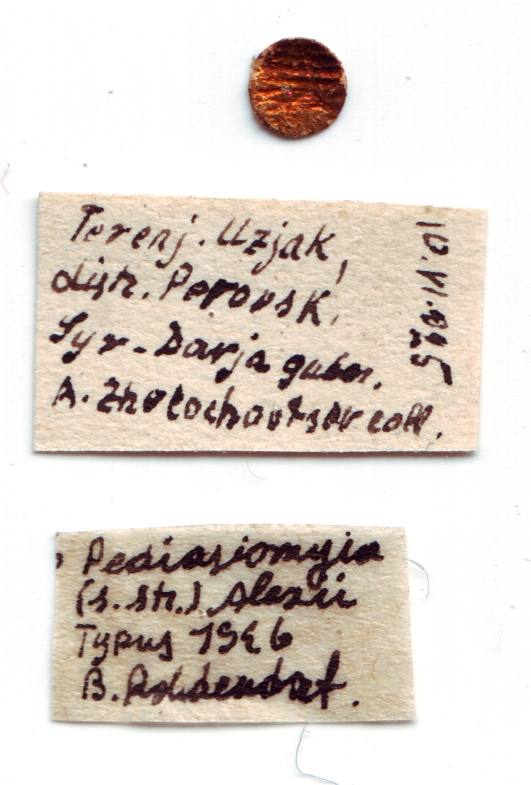 Terenj-Uzjak,
distr. Perovsk,
Syr-Darja guber.
A. Zholochovtsev coll.
10.VI.1925
Pediasiomyia
(s. str.) Alexii
Typus 1926
B. Rohdendorf.